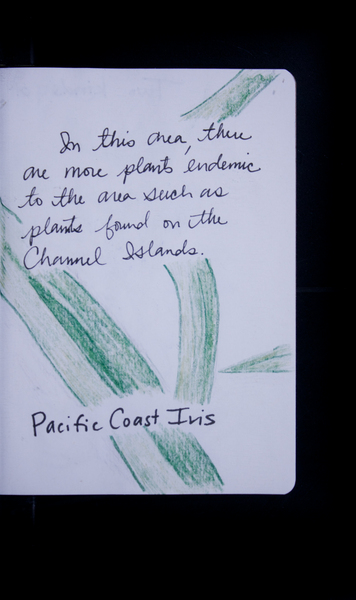 In this area, there
are more plants endemic
to the area such as
plants found on the
Channel Islands.
Pacific Coast Iris